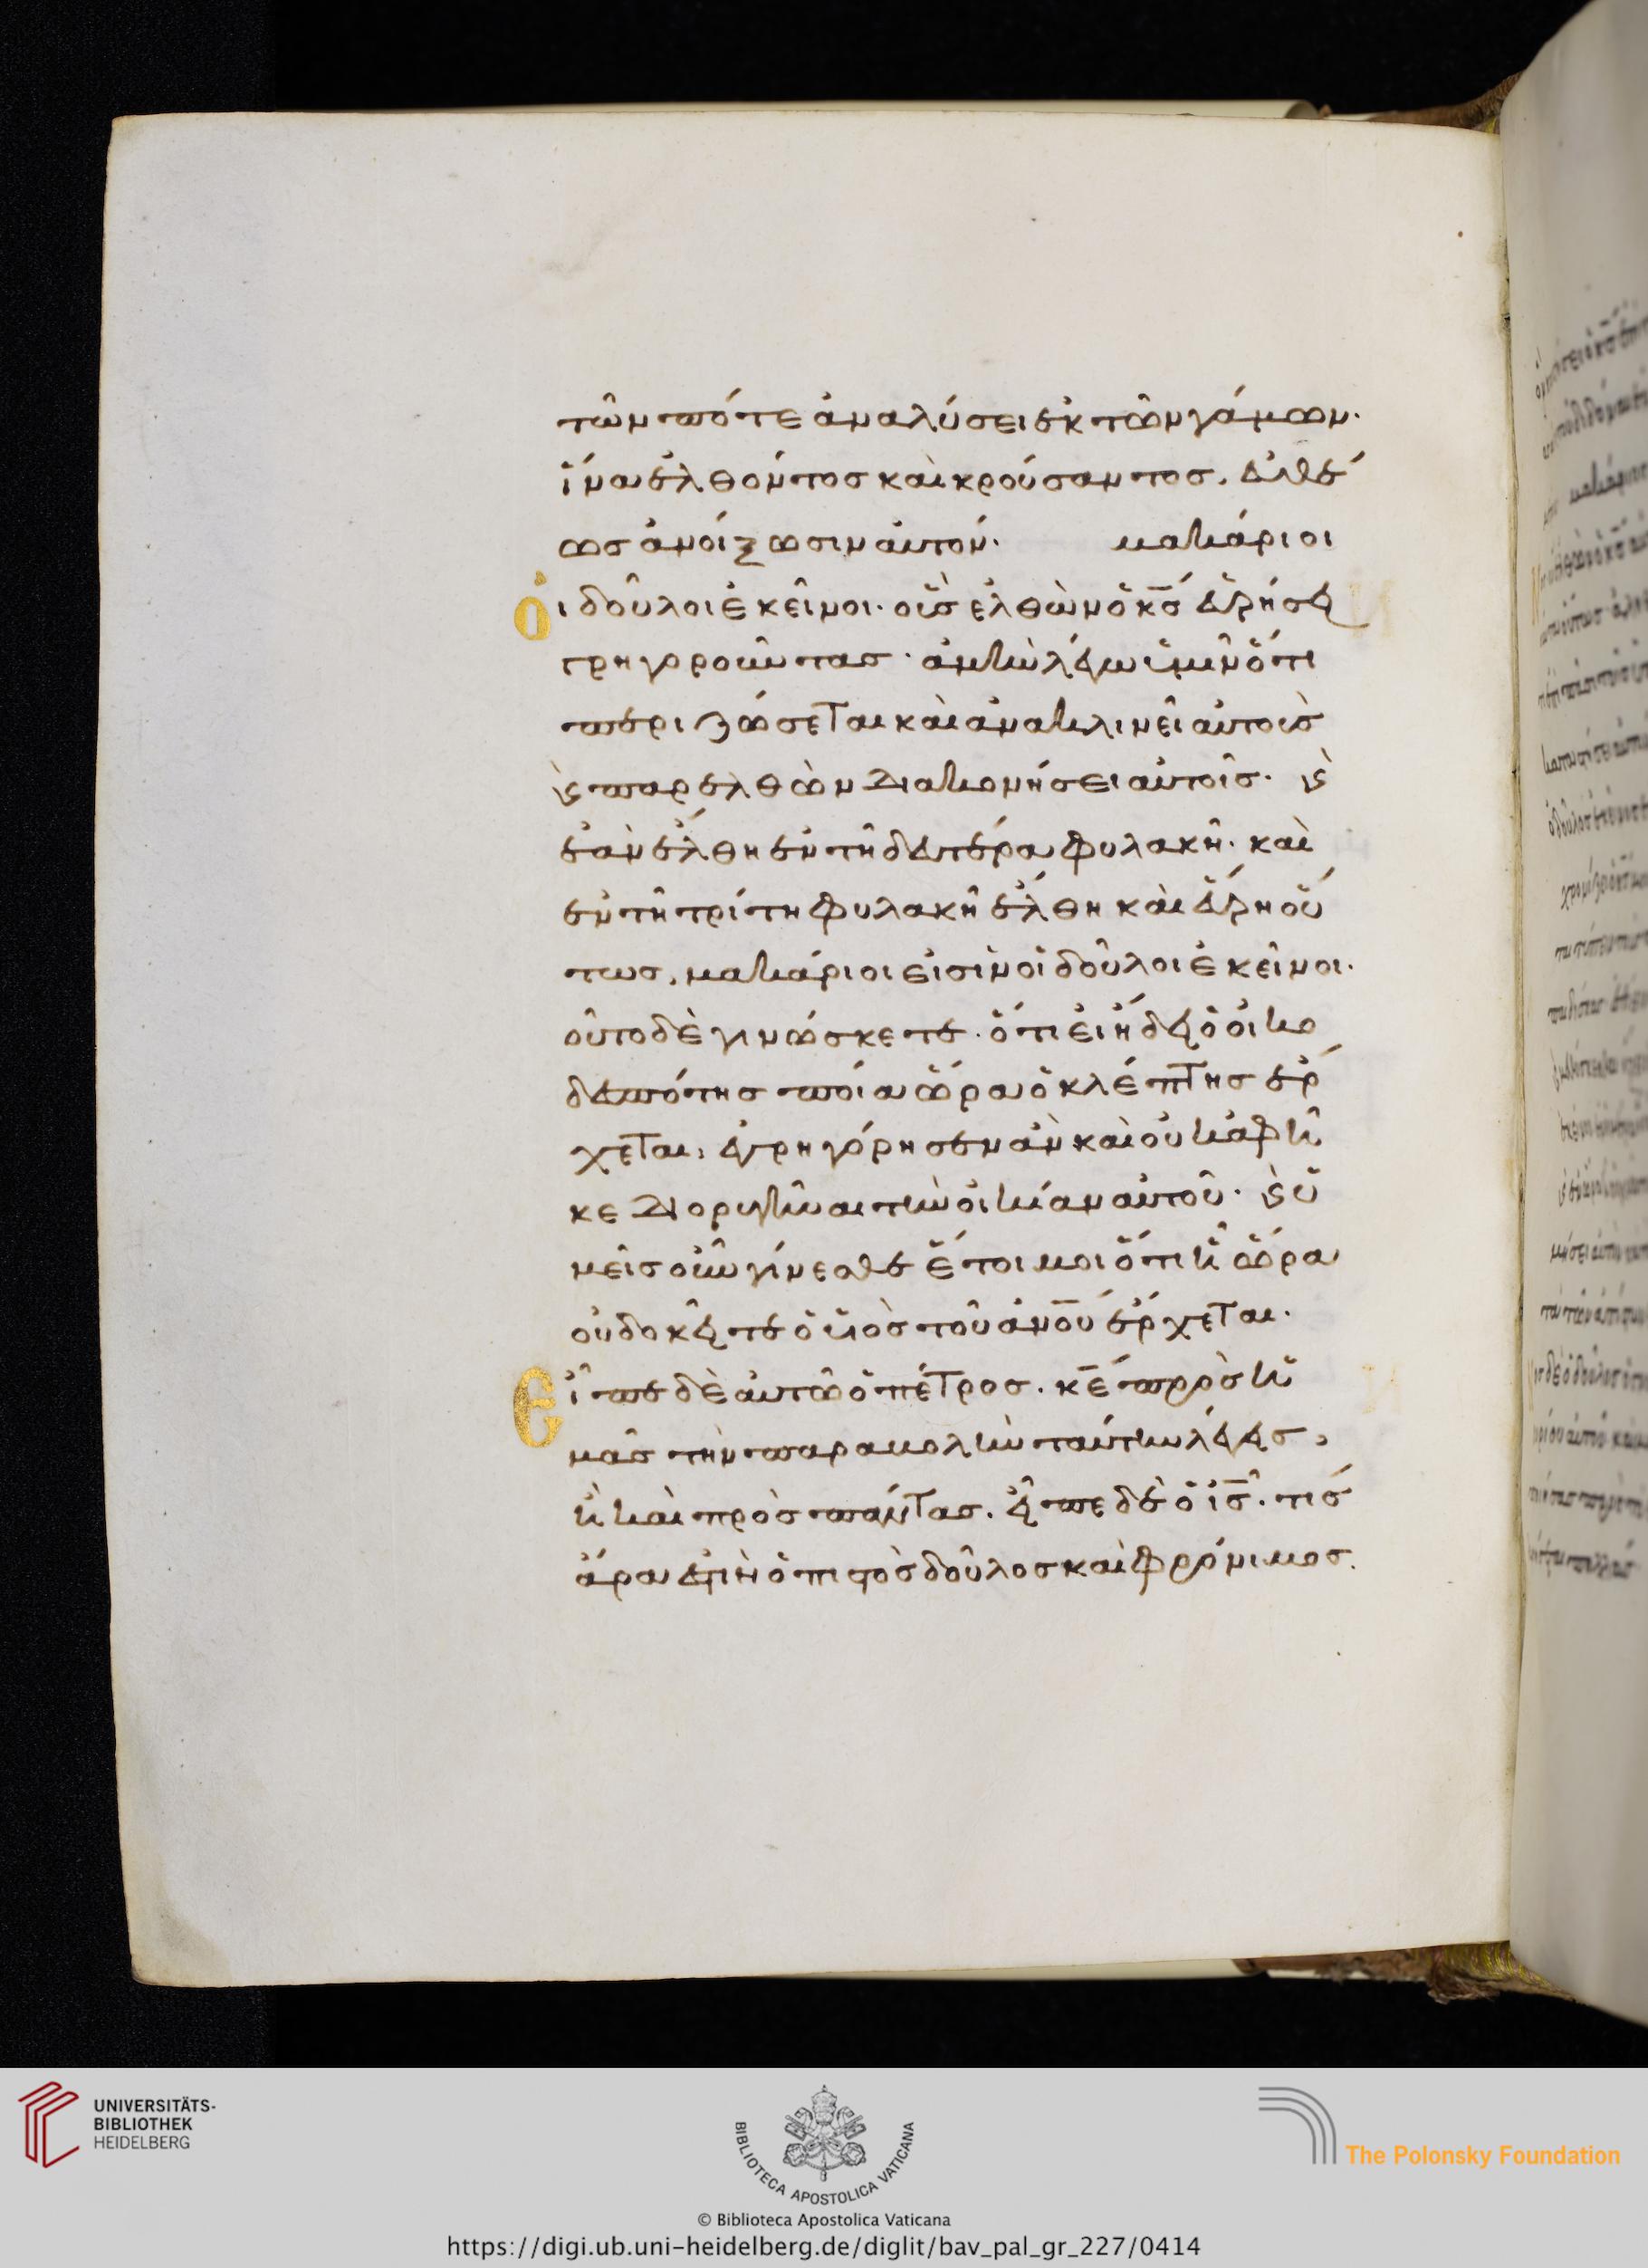 τῶν πότε ἀναλύσει ἐκ τῶν γάμων·
ἵνα ἐλθόντος καὶ κρούσαντος, εὐθέ
ως ἀνοίξωσιν αὐτόν· μακάριοι
ὁι δοῦλοι ἐκεῖνοι· οὓς ἐλθὼν ὁ κ̅ς̅ εὑρήσει
γρηγοροῦντας· ἀμὴν λέγω ὑμῖν ὅτι
περιζώσεται καὶ ἀνακλινεῖ αὐτοὺς
ϗ παρελθὼν διακονήσει αὐτοῖς· ϗ
ἐὰν ἔλθη ἐν τῆ δευτέρα φυλακῆ· καὶ
ἐν τῆ τρίτη φυλακῆ ἔλθη καὶ εὕρη οὕ
τως, μακάριοι εἰσὶν οἱ δοῦλοι ἐκεῖνοι·
οὗτο δὲ γινώσκετε· ὅτι εἰ ἤδει ὁ οἰκο
δεσπότης ποία ὥρα ὁ κλέπτης ἔρ
χεται, ἐγρηγόρησεν ἂν καὶ οὐκ ἀφῆ
κε διορυγῆναι τὴν οἰκίαν αὐτοῦ· ϗ ὑ
μεῖς οὖν γίνεσθε ἕτοιμοι ὅτι ἧ ὥρα
οὐ δοκεῖτε ὁ υἱὸς τοῦ ἀν̅ο̅υ̅ ἔρχεται·
Εἶπε δὲ αὐτῶ ὁ πέτρος· κ̅ε̅ πρὸς ἡ
μᾶς τὴν παραβολὴν ταύτην λέγεις,
ἢ καὶ πρὸς πάντας· εἶπε δὲ ὁ ἰ̅ς̅· τίς
ἄρα ἐστὶν ὁ πιστὸς δοῦλος καὶ φρόνιμος.
UNIVERSITÄTS-
BIBLIOTHEK
HEIDELBERG
BIBLIOTECA APOSTOLICA VATICANA
The Polonsky Foundation
© Biblioteca Apostolica Vaticana
https://digi.ub.uni-heidelberg.de/diglit/bav_pal_gr_227/0414